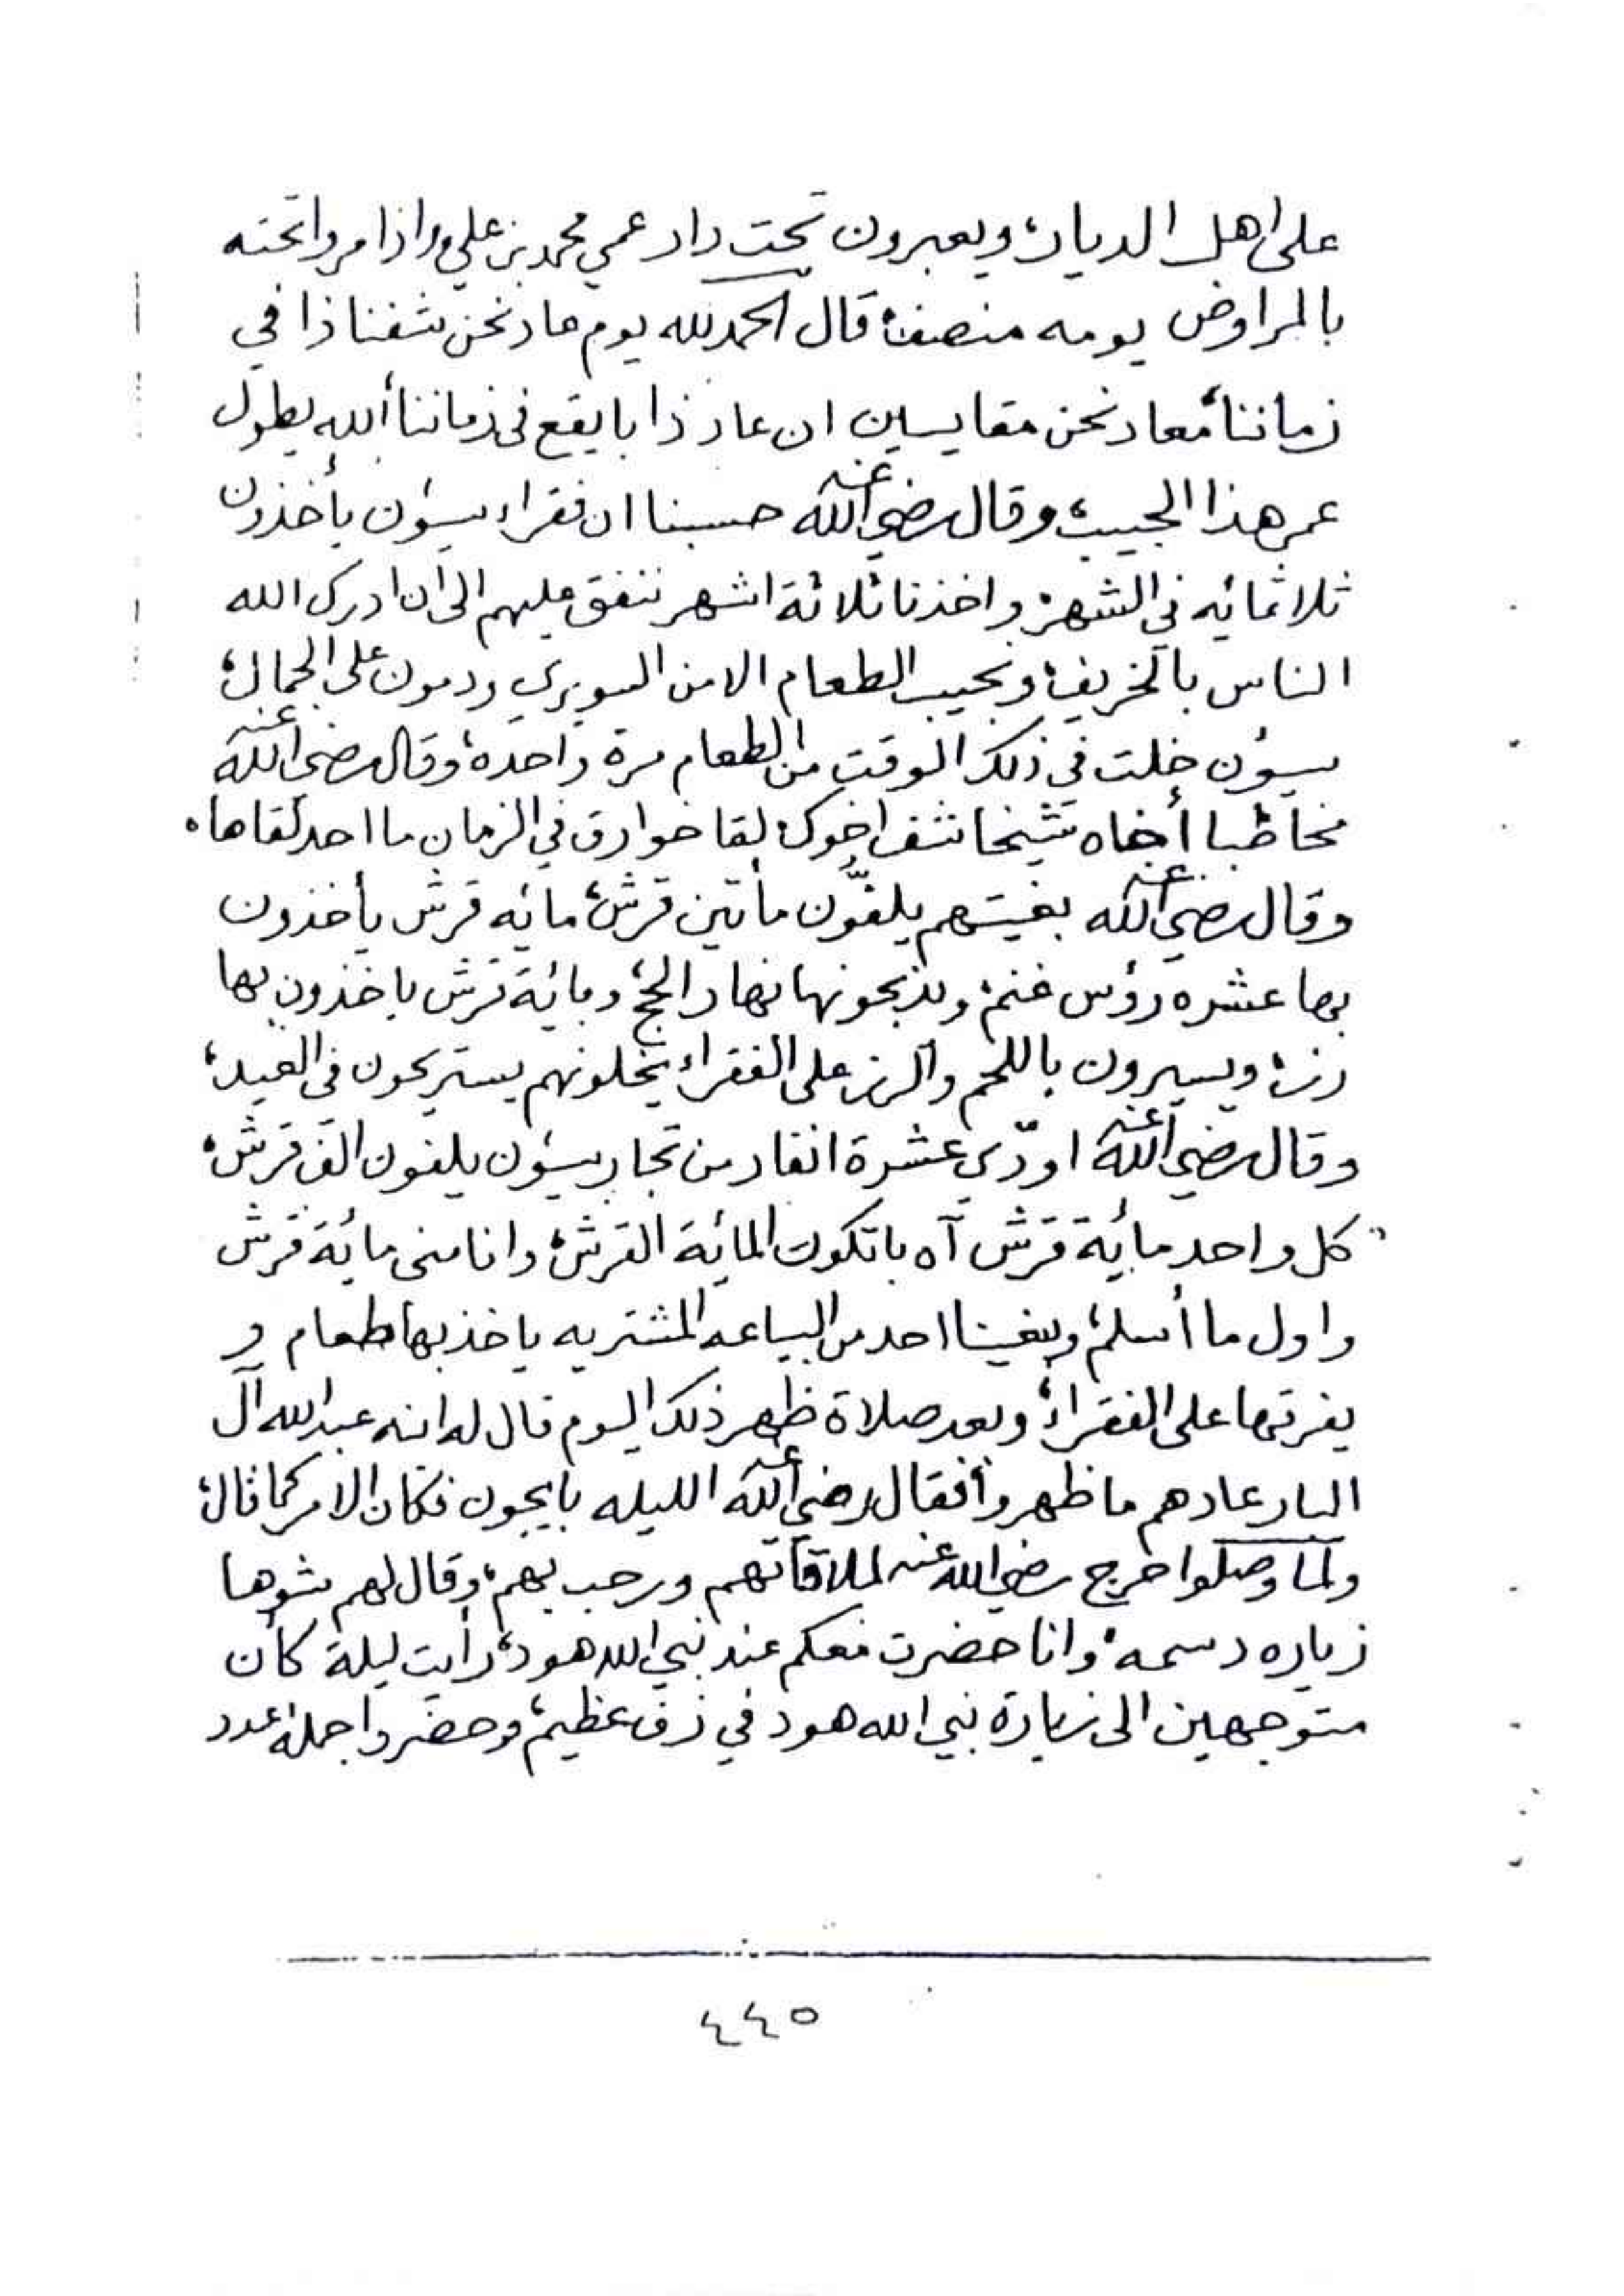 على اهل الديار، ويعبرون تحت دار عمي محمد بن علي، واذا مروا تحته
بالمراوض يومه منصف، قال الحمد لله يوم عاد نحن شفنا ذا في
زماننا، معاد نحن مقايسين ان عاد ذا بايقع في زماننا، الله يطول
عمر هذا الحبيب، وقال رضي الله عنه حسبنا ان فقراء سيؤن يأخذون
ثلاثمائه في الشهر، واخذنا ثلاثة اشهر ننفق عليهم الى ان ادرك الله
الناس بالخريف، ونجيب الطعام الا من السويري ودمون على الجمال،
سيؤن خلت في ذلك الوقت من الطعام مرة واحده، وقال رضي الله عنه
مخاطبا أخاه شيخا شف اخوك لقا خوارق في الزمان ما احد لقاها.
وقال رضي الله عنه بغيتهم يلفّون مأتين قرش، مائه قرش يأخذون
بها عشره رؤس غنم، ويذبحونها نهار الحج، وبمائة قرش ياخذون بها
رز، ويسيرون باللحم والرز على الفقراء يخلونهم يستريحون في العيد،
وقال رضي الله عنه اودّي عشرة انفار من تجار سيؤن يلفون الف قرش،
كل واحد مائة قرش آه باتكون المائة القرش، وانا مني مائة قرش
واول ما أسلم، وبغينا احد من البياعه المشتريه ياخذ بها طعام و
يفرقها على الفقراء، وبعد صلاة ظهر ذلك اليوم قال له ابنه عبدالله آل
البار عادهم ما ظهروا، فقال رضي الله عنه الليله بايجون فكان الامر كما قال،
ولما وصلوا خرج رضي الله عنه لملاقاتهم ورحب بهم، وقال لهم شوها
زياره دسمه، وانا حضرت معكم عند نبي الله هود، رأيت ليلة كان
متوجهين الى زيارة نبي الله هود في زف عظيم، وحضروا جملة عدد
٤٤٥